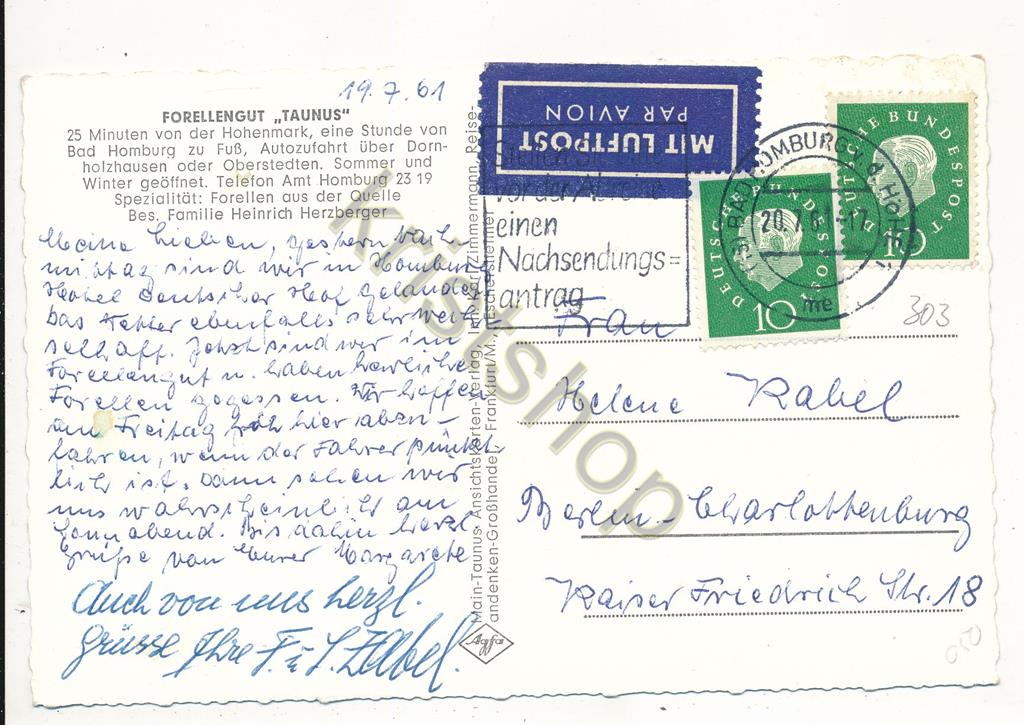 19.7.61
FORELLENGUT „TAUNUS"
25 Minuten von der Hohenmark, eine Stunde von
Bad Homburg zu Fuß, Autozufahrt über Dorn-
holzhausen oder Oberstedten. Sommer und
Winter geöffnet. Telefon Amt Homburg 23 19
Spezialität: Forellen aus der Quelle
Bes. Familie Heinrich Herzberger
Meine Lieben, gestern nach-
mittag sind wir in Homburg
Hotel Deutscher Hof gelandet
Das Wetter ebenfalls sehr
Jetzt sind wir im
Forellengut u. haben herrliche
Forellen gegessen. Wir hoffen
am Freitag früh hier abzu-
fahren, wenn der Fahrer pünkt-
lich ist. Dann sehen wir
uns wahrscheinlich am
Sonnabend. Bis dahin herzl.
Grüße von Eurer Margarete
Auch von uns herzl.
Grüsse Ihre F. u.
Main-Taunus, Ansichtskarten-Verlag, Zimmermann, Reise-
andenken-Großhandel, Frankfurt/M.,
Agfa
MIT LUFTPOST
PAR AVION
vor der
einen
Nachsendungs=
antrag
BAD HOMBURG v. d. Höhe
20.7.61-17
me
DEUTSCHE BUNDESPOST
10
DEUTSCHE BUNDESPOST
10
303
Frau
Helene Rabel
Berlin-Charlottenburg
Kaiser Friedrich Str. 18
050
kristshop